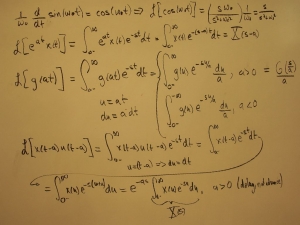 1/ω₀ d/dt sin(ω₀t) = cos(ω₀t) ⇒ ℒ[cos(ω₀t)] = (s ω₀/(s²+ω₀²)) 1/ω₀ = s/(s²+ω₀²)
ℒ[e^{at} x(t)] = ∫_{0-}^{∞} e^{at} x(t) e^{-st} dt = ∫_{0-}^{∞} x(t) e^{-(s-a)t} dt = X(s-a)
ℒ[g(at)] = ∫_{0-}^{∞} g(at) e^{-st} dt = { ∫_{0-}^{∞} g(u) e^{-su/a} du/a, a>0 = G(s/a)/a
u = at
du = a dt
∫_{0-}^{-∞} g(u) e^{-su/a} du/a, a<0
ℒ[x(t-a) u(t-a)] = ∫_{0-}^{∞} x(t-a) u(t-a) e^{-st} dt = ∫_{a-}^{∞} x(t-a) e^{-st} dt
u=(t-a) ⇒ du=dt
= ∫_{0-}^{∞} x(u) e^{-s(u+a)} du = e^{-as} ∫_{0-}^{∞} x(u) e^{-su} du, a>0
X(s)